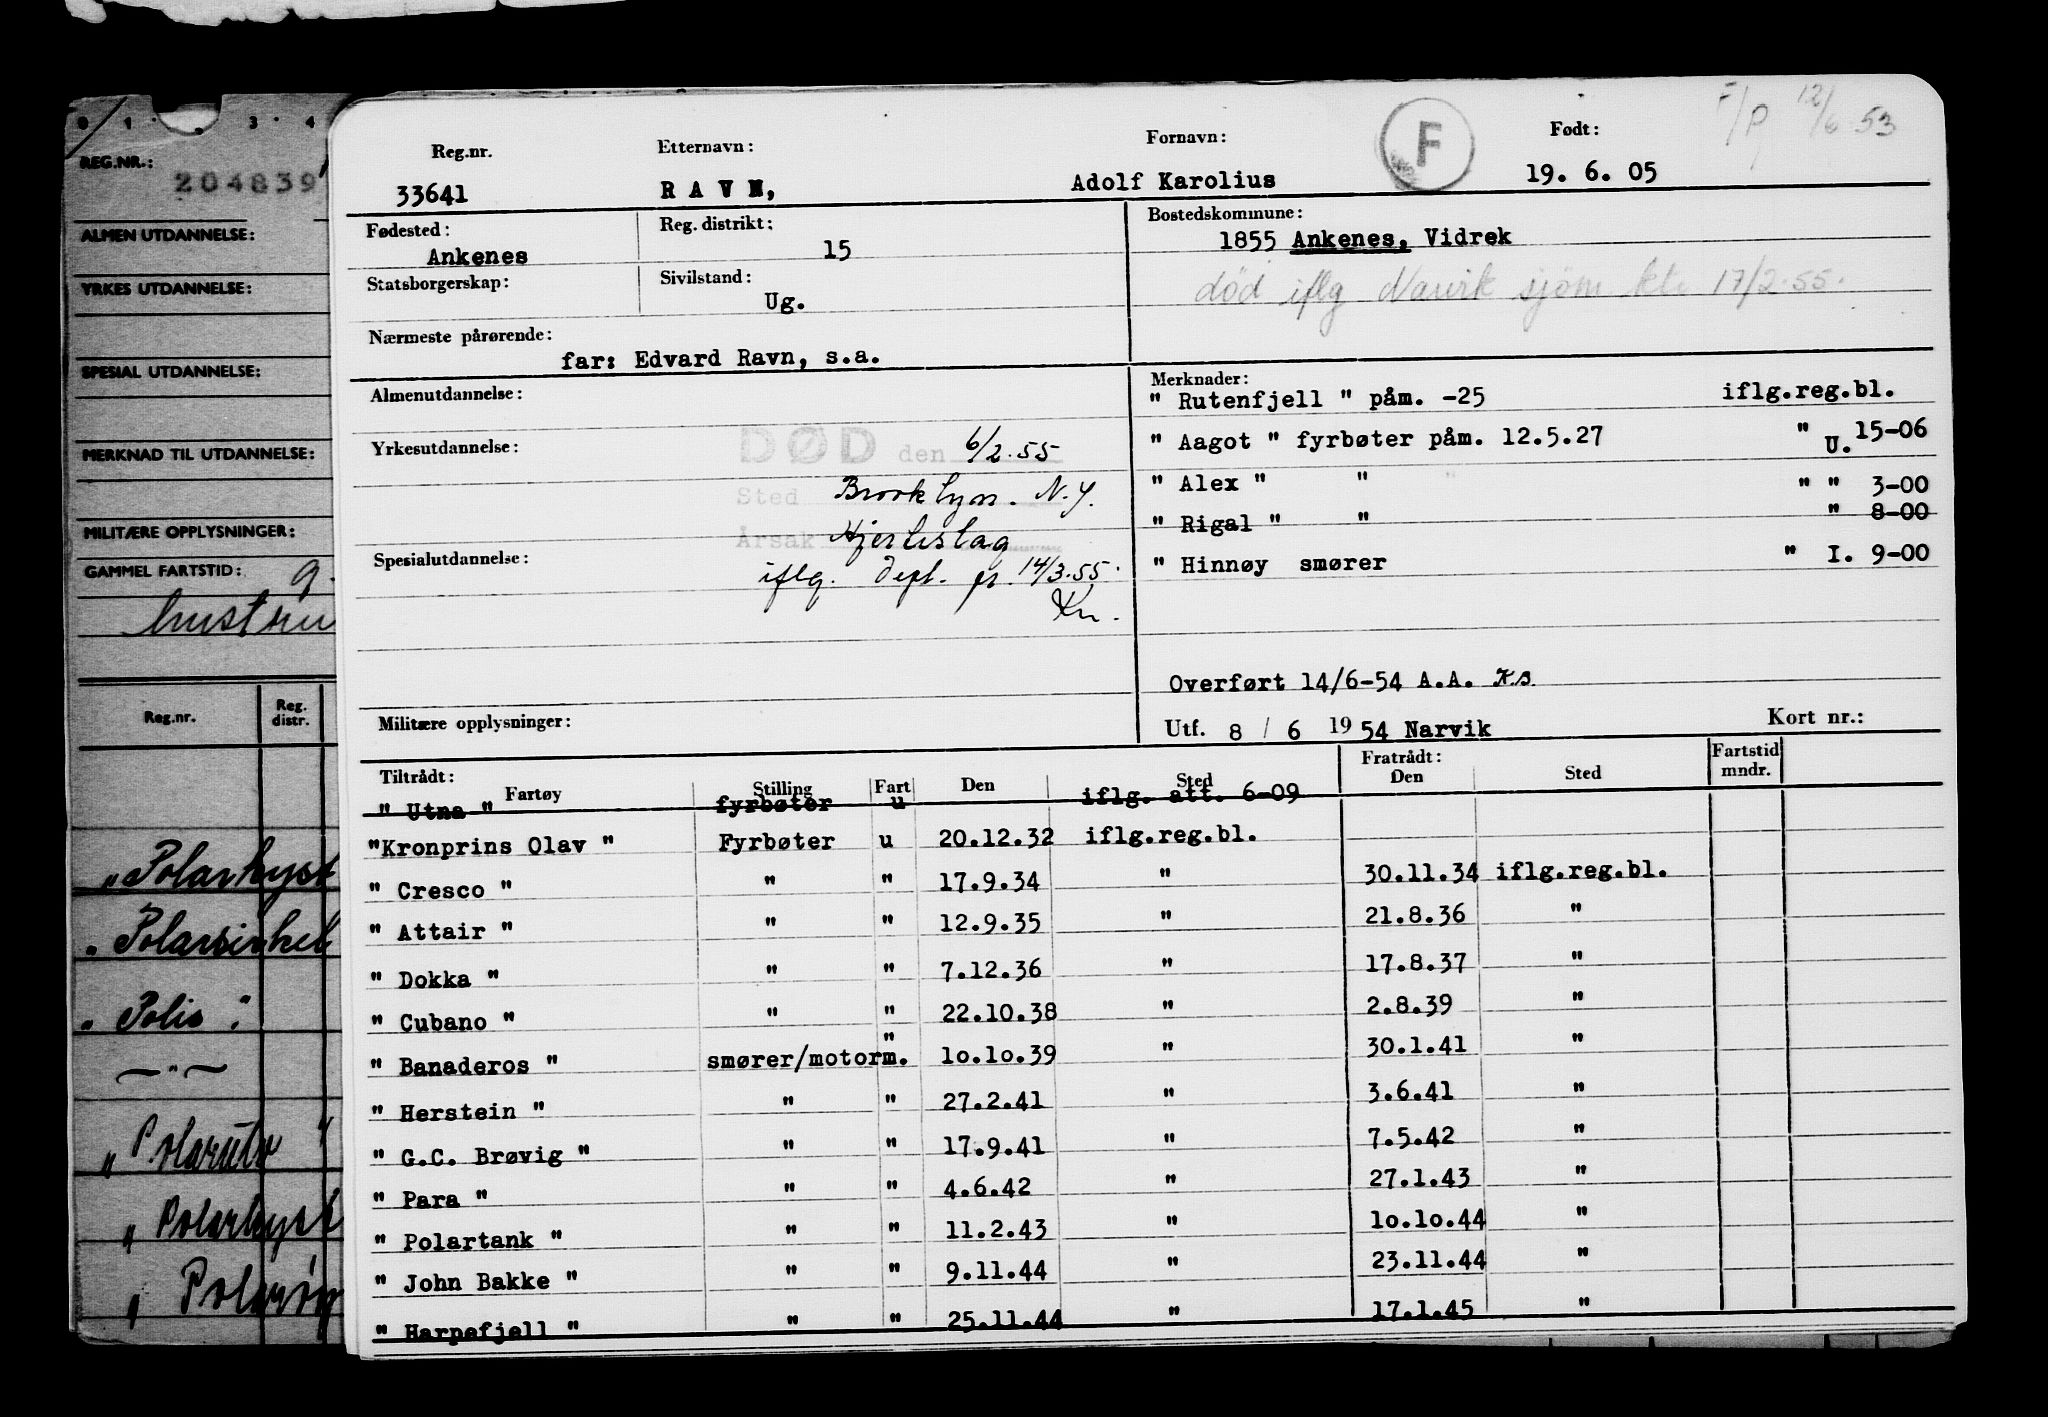 0 1 . . 3 . 4
REG.NR.:
204839
ALMEN UTDANNELSE:
YRKES UTDANNELSE:
SPESIAL UTDANNELSE:
MERKNAD TIL UTDANNELSE:
MILITÆRE OPPLYSNINGER:
GAMMEL FARTSTID: 9
Reg.nr. Reg. distr.
" Polarkyst
" Polarsirkel
" Polis "
— " —
" Polarkyst
F/P 12/6 53
Reg.nr. Etternavn: Fornavn: F Født:
33641 RAVN, Adolf Karolius 19. 6. 05
Fødested: Reg. distrikt: Bostedskommune:
Ankenes 15 1855 Ankenes, Vidrek
Statsborgerskap: Sivilstand:
Ug.
død iflg Narvik sjøm. kt. 17/2.55.
Nærmeste pårørende:
far: Edvard Ravn, s.a.
Almenutdannelse:
Yrkesutdannelse:
DØD den 6/2.55
Sted Brooklyn. N.Y.
Årsak Hjerteslag
Spesialutdannelse:
iflg. Depl. fr. 14/3.55.
Kn.
Militære opplysninger:
Merknader:
" Rutenfjell " påm. -25 iflg.reg.bl.
" Aagot " fyrbøter påm. 12.5.27 " U. 15-06
" Alex " " " " 3-00
" Rigal " " " 8-00
" Hinnøy smører " I. 9-00
Overført 14/6-54 A.A. K.S.
Utf. 8 / 6 1954 Narvik Kort nr.:
Tiltrådt: Fratrådt: Fartstid
Fartøy Stilling Fart Den Sted Den Sted mndr.
" Utna " fyrbøter u iflg. att. 6-09
"Kronprins Olav " Fyrbøter u 20.12.32 iflg.reg.bl.
" Cresco " " " 17.9.34 " 30.11.34 iflg.reg.bl.
" Attair " " " 12.9.35 " 21.8.36 "
" Dokka " " " 7.12.36 " 17.8.37 "
" Cubano " " " 22.10.38 " 2.8.39 "
" Banaderos " smører/motorm. " 10.10.39 " 30.1.41 "
" Herstein " " " 27.2.41 " 3.6.41 "
" G.C. Brøvig " " " 17.9.41 " 7.5.42 "
" Para " " " 4.6.42 " 27.1.43 "
" Polartank " " " 11.2.43 " 10.10.44 "
" John Bakke " " " 9.11.44 " 23.11.44 "
" Harpefjell " " " 25.11.44 " 17.1.45 "